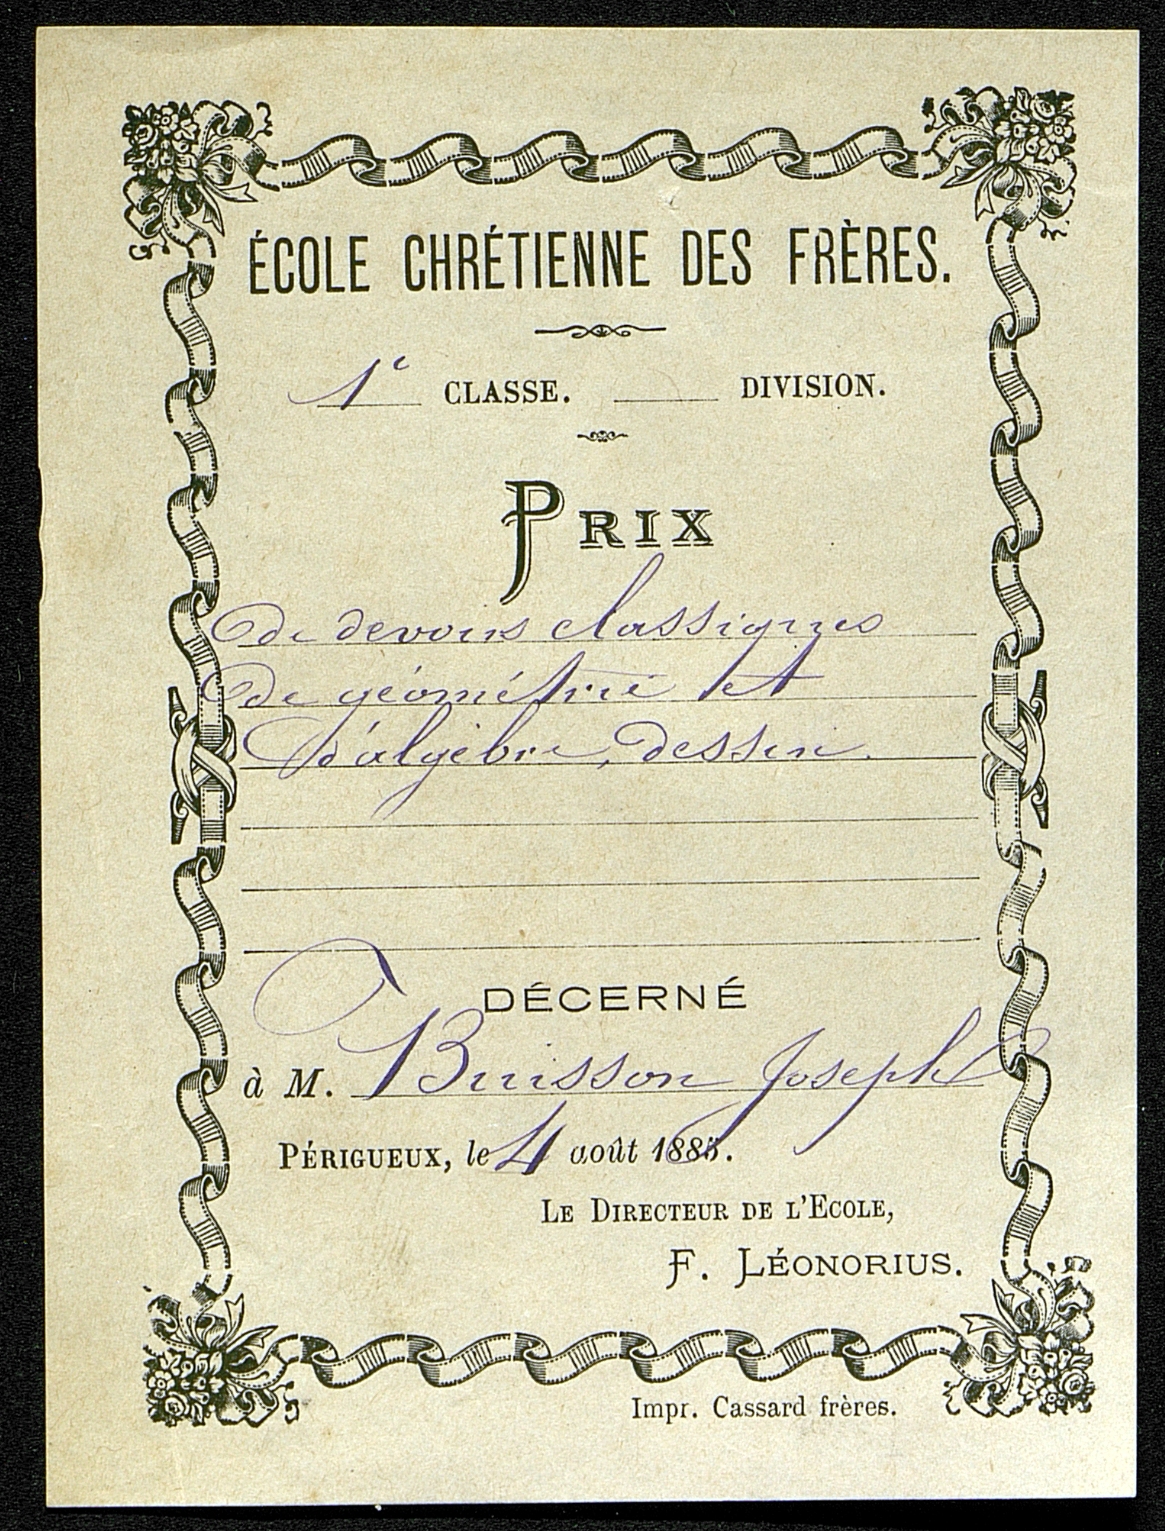 ÉCOLE CHRÉTIENNE DES FRÈRES.
1e CLASSE. DIVISION.
PRIX
De devoirs classiques
De géométrie et
D'algèbre, dessin.
DÉCERNÉ
à M. Buisson Joseph
PÉRIGUEUX, le 4 août 1885.
LE DIRECTEUR DE L'ECOLE,
F. LÉONORIUS.
Impr. Cassard frères.